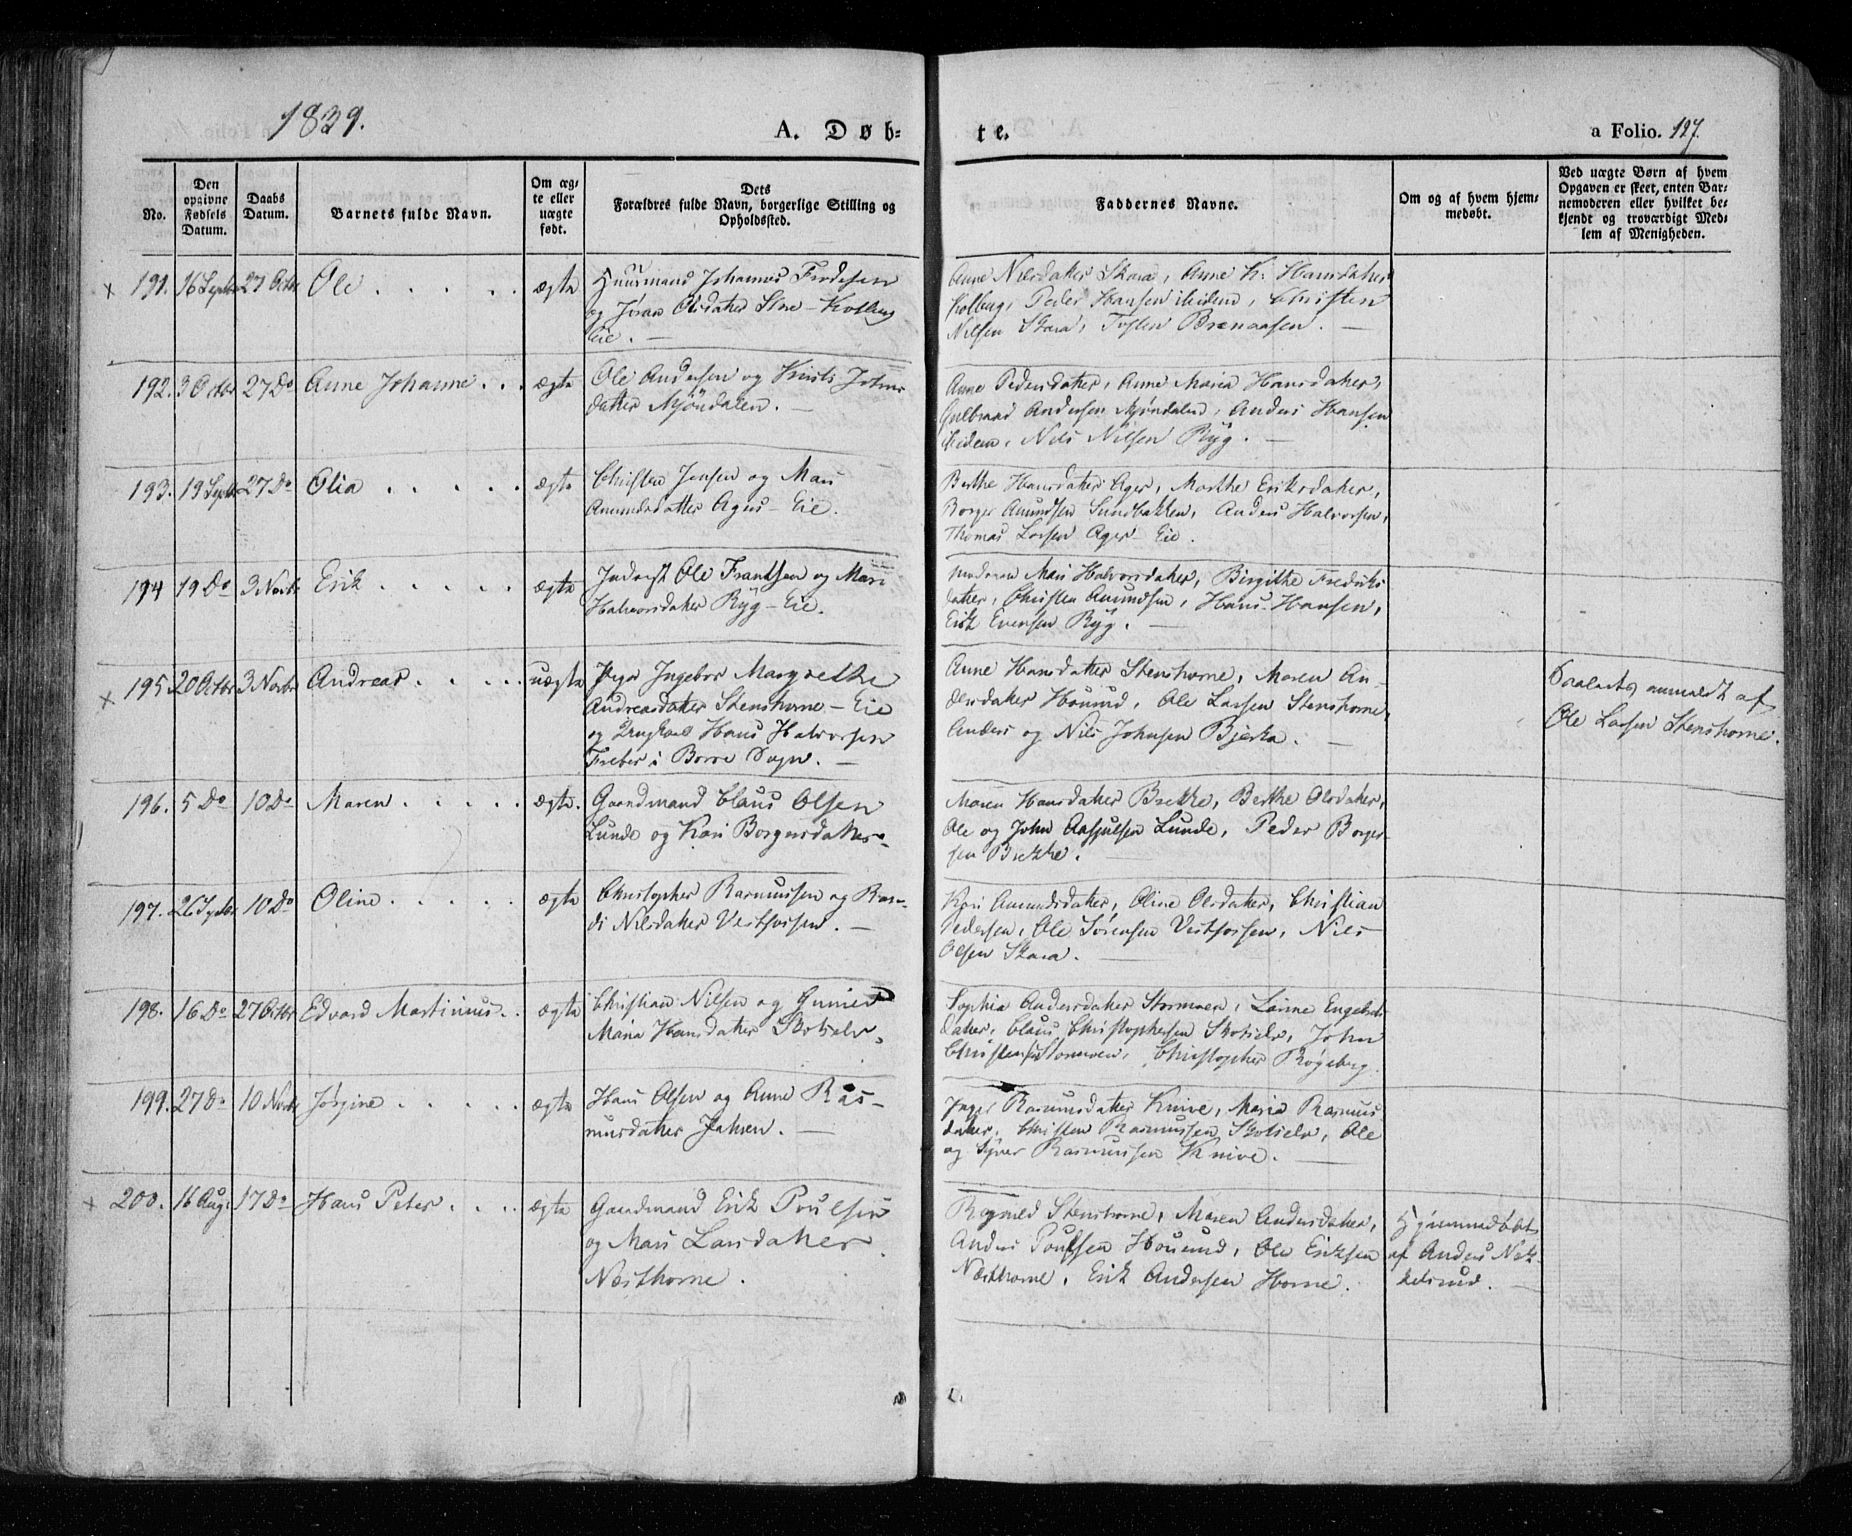 1839.
A. Døb-
te.
a Folio. 127.
No.
Den opgivne Fødsels Datum.
Daabs Datum.
Barnets fulde Navn.
Om ægte eller uægte født.
Dets
Forældres fulde Navn, borgerlige Stilling og
Opholdssted.
Faddernes Navne.
Om og af hvem hjemmedøbt.
Ved uægte Børn af hvem
Opgaven er skeet, enten Bar-
nemoderen eller hvilket be-
kjendt og troværdigt Med-
lem af Menigheden.
× 191. 16 Septbr 27 Octbr Ole ægte Huusmand Johannes
og Jøran Olsdatter Kolberg
Eie.
Anne Nilsdatter Skara, Anne K. Hansdatter
Kolberg, Peder Hansen ibidem, Christen
Nilsen Skara, Tosten Brenaasen.
192. 3 Octbr 27 Do Anne Johanne ægte Ole Andersen og Kirsti Johns
datter Mjøndalen.
Anne Pedersdatter, Anne Maria Hansdatter,
Gulbrand Andersen Mjøndalen, Anders Hansen
ibidem, Nils Nilsen Ryg.
193. 19 Septbr 27 Do Olia ægte Christen Jensen og Mari
Amundsdatter Ager-Eie.
Berthe Hansdatter Ager, Marthe Eriksdatter,
Borger Amundsen Sundbakken, Anders Halvorsen,
Thomas Larsen Ager-Eie.
194 19 Do 3 Novbr Erik ægte Inderst Ole Frantsen og Mari
Halvorsdatter Ryg-Eie.
Mari Halvorsdatter, Birgithe Fredriks
datter, Christen Amundsen, Hans Hansen,
Erik Evensen Ryg.
× 195 20 Octbr 3 Novbr Andreas uægte Pige Ingebor Margrethe
Andreasdatter Stenshorne-Eie
og Ungkarl Hans Halvorsen
Freber i Borre Sogn.
Anne Hansdatter Stenshorne, Maren An-
dersdatter Houund, Ole Larsen Stenshorne,
Anders og Nils Johnsen Bjerka.
anmeldt af
Ole Larsen Stenshorne.
196. 5 Do 10 Do Maren ægte. Gaardmand Claus Olsen
Lunde og Kari Borgersdatter.
Maren Hansdatter Brekke, Berthe Olsdatter,
Ole og John Aslulsen Lunde, Peder Borger-
sen Brekke.
197. 26 Septbr 10 Do Oline ægte Christopher Rasmussen og Ran-
di Nilsdatter Vestfossen.
Kari Amundsdatter, Oline Olsdatter, Christian
Pedersen, Ole Sørensen Vestfossen, Nils
Olsen Skara.
198. 16 Do 27 Octbr Edvard Martinius ægte Christian Nilsen og Gunild
Maria Hansdatter Skotselv.
Sophia Andersdatter Stormoen, Engebret
datter, Claus Christophersen Skotselv, John
Christensen Stormoen, Christopher Røgeberg.
199. 27 Do 10 Novbr Jørgine ægte Hans Olsen og Anne Ras-
musdatter Jahren.
Inger Rasmusdatter Knive, Maria Rasmus
datter, Christen Rasmussen Skotselv, Ole
og Syver Rasmussen Knive.
× 200. 16 Aug. 17 Do Hans Peter ægte Gaardmand Erik Poulsen
og Mari Larsdatter
Næsthorne.
Ragnild Stenshorne, Maren Andersdatter,
Anders Poulsen Houund, Ole Eriksen
Næsthorne, Erik Andersen Horne.
Hjemmedøbt
af Anders Nek-
kelsrud.